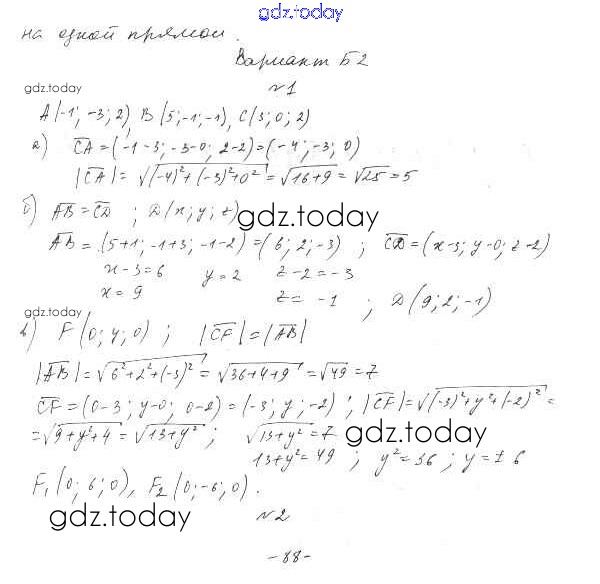 gdz.today
на одной прямой.
Вариант Б2
gdz.today
№1
A(-1; -3; 2), B(5; -1; -1), C(3; 0; 2)
а) CA = (-1-3; -3-0; 2-2) = (-4; -3; 0)
|CA| = √((-4)²+(-3)²+0²) = √(16+9) = √25 = 5
б) AB = CD ; D(x; y; z)
gdz.today
AB = (5+1; -1+3; -1-2) = (6; 2; -3) ; CD = (x-3; y-0; z-2)
x-3=6 y=2 z-2=-3
x=9 z=-1 ; D(9; 2; -1)
gdz.today
в) F(0; y; 0) ; |CF| = |AB|
|AB| = √(6²+2²+(-3)²) = √(36+4+9) = √49 = 7
CF = (0-3; y-0; 0-2) = (-3; y; -2) ; |CF| = √((-3)²+y²+(-2)²) =
= √(9+y²+4) = √(13+y²) ; √(13+y²) = 7
gdz.today
13+y²=49 ; y²=36 ; y=±6
F₁(0; 6; 0), F₂(0; -6; 0).
gdz.today
№2
-88-